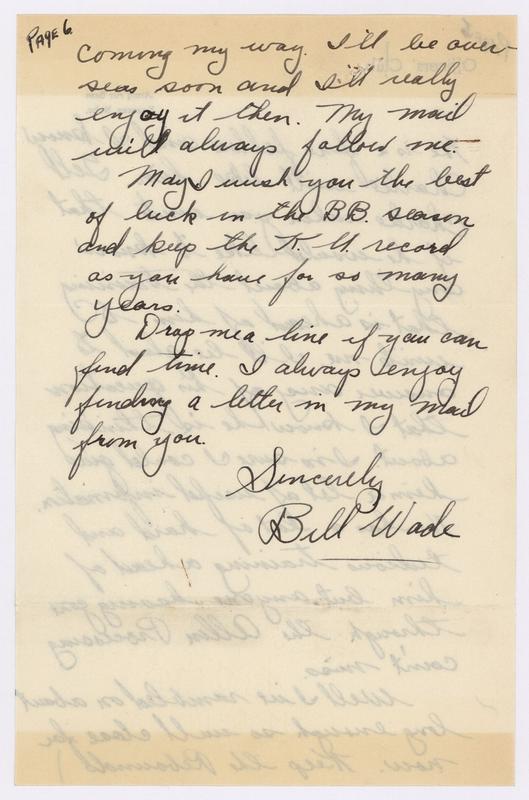 PAGE 6
coming my way. I'll be over-
seas soon and I'll really
enjoy it then. My mail
will always follow me.
May I wish you the best
of luck in the B.B. season
and keep the K.U. record
as you have for so many
years.
Drop me a line if you can
find time. I always enjoy
finding a letter in my mail
from you.
Sincerely
Bill Wade